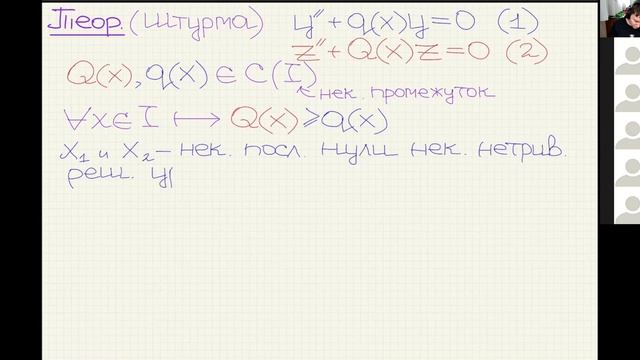 Теор. (Штурма) y'' + q(x)y = 0 (1)
z'' + Q(x)z = 0 (2)
Q(x), q(x) ∈ C(I)
нек. промежуток
∀x∈I ↦ Q(x) ⩾ q(x)
x₁ и x₂ – нек. посл. нули нек. нетрив.
реш. у